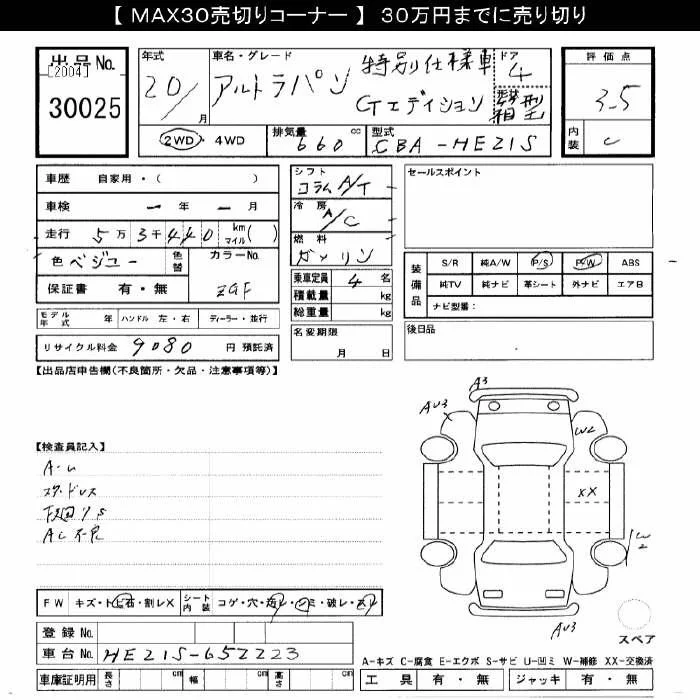 【 MAX30売切りコーナー 】 30万円までに売り切り
出品No.
[2004]
30025
年式
20/
月
車名・グレード
アルトラパン
特別仕様車
GTエディション
ドア
4
形状
箱型
2WD ・ 4WD
排気量
660 cc
型式
CBA-HE21S
評価点
3.5
内装
C
車歴 自家用・( )
車検 ー年ー月
走行 5万3千440 km マイル ( )
色 ベジュー 色替 カラーNo.
保証書 有・無 ZGF
モデル年式 年 ハンドル 左・右 ディーラー・並行
リサイクル料金 9080 円 預託済
シフト
コラムA/T
冷房
A/C
燃料
ガソリン
乗車定員 4 名
積載量 kg
総重量 kg
名変期限
月 日
セールスポイント
装備品
S/R 純A/W P/S P/W ABS
純TV 純ナビ 革シート 外ナビ エアB
ナビ型番:
後日品
【出品店申告欄(不良箇所・欠品・注意事項等)】
【検査員記入】
スタッドレス
下回りS
AC不良
A3
AU3
W2
XX
W2
AU3
スペア
FW キズ・トビ石・割レX シート内装 コゲ・穴・汚レ・シミ・破レ・スレ
登録No.
車台No. HE21S-652223
車庫証明用 長さ cm 幅 cm 高さ cm
A-キズ C-腐食 E-エクボ S-サビ U-凹ミ W-補修 XX-交換済
工具 有・無 ジャッキ 有・無